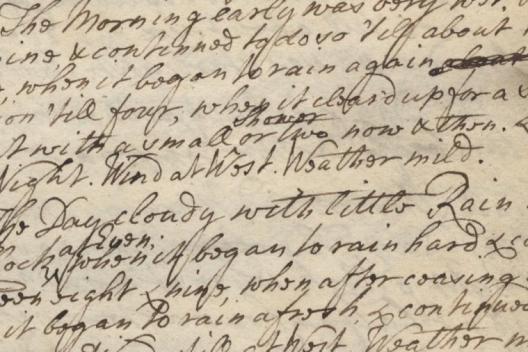 The Morning early was very wet,
nine, & continued to do so 'till about
when it began to rain again
on 'till four, when it cleard up for a
t with a small Shower or two now & then. &
Night. Wind at West. Weather mild.
The Day cloudy with little Rain
ock at Even, when it began to rain hard &
een eight & nine, when after ceasing
it began to rain afresh, & continued
West. Weather m